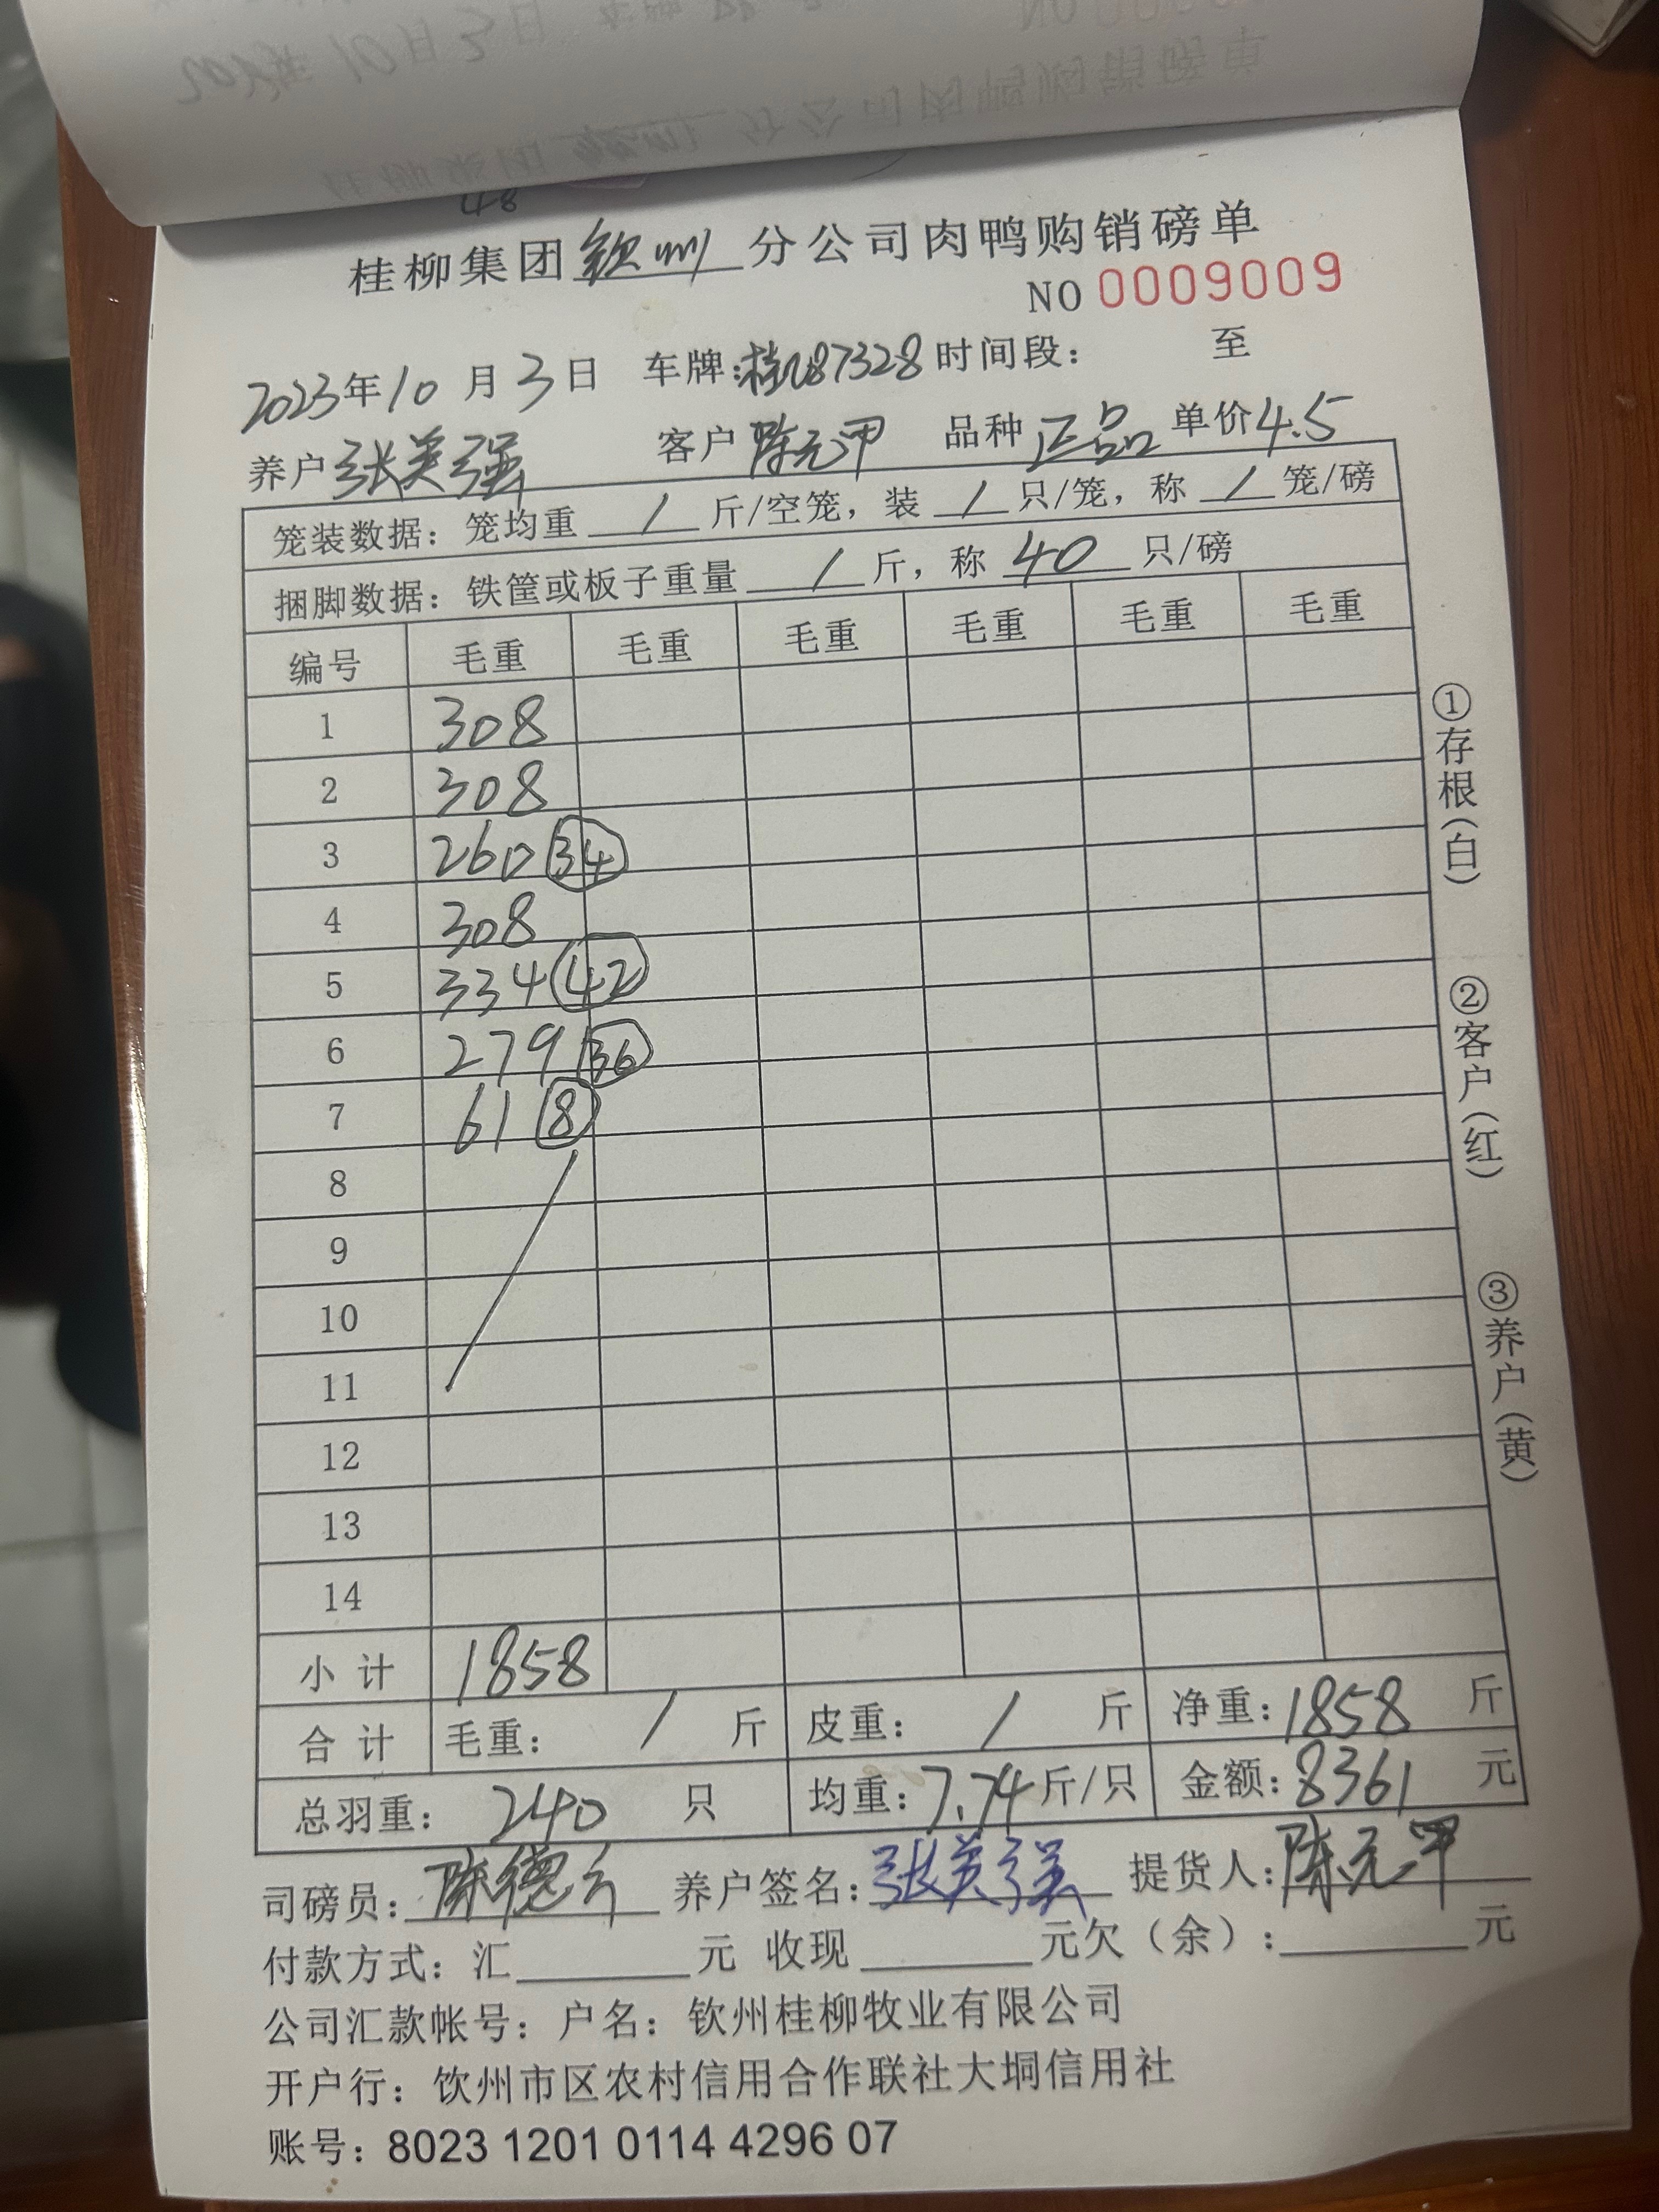 48
桂柳集团钦州分公司肉鸭购销磅单
NO 0009009
2023年10月3日 车牌:桂N87328 时间段: 至
养户张美强 客户陈元甲 品种正品 单价4.5
笼装数据: 笼均重 / 斤/空笼, 装 / 只/笼, 称 / 笼/磅
捆脚数据: 铁筐或板子重量 / 斤, 称 40 只/磅
编号 毛重 毛重 毛重 毛重 毛重 毛重
1 308
2 308
3 260 34
4 308
5 334 42
6 279 36
7 61 8
8
9
10
11
12
13
14
小计 1858
合计 毛重: / 斤 皮重: / 斤 净重:1858 斤
总羽重: 240 只 均重:7.74斤/只 金额:8361 元
司磅员:陈德 养户签名:张美强 提货人:陈元甲
付款方式: 汇 元 收现 元欠(余): 元
公司汇款帐号: 户名: 钦州桂柳牧业有限公司
开户行: 钦州市区农村信用合作联社大垌信用社
账号: 8023 1201 0114 4296 07
①存根(白)
②客户(红)
③养户(黄)